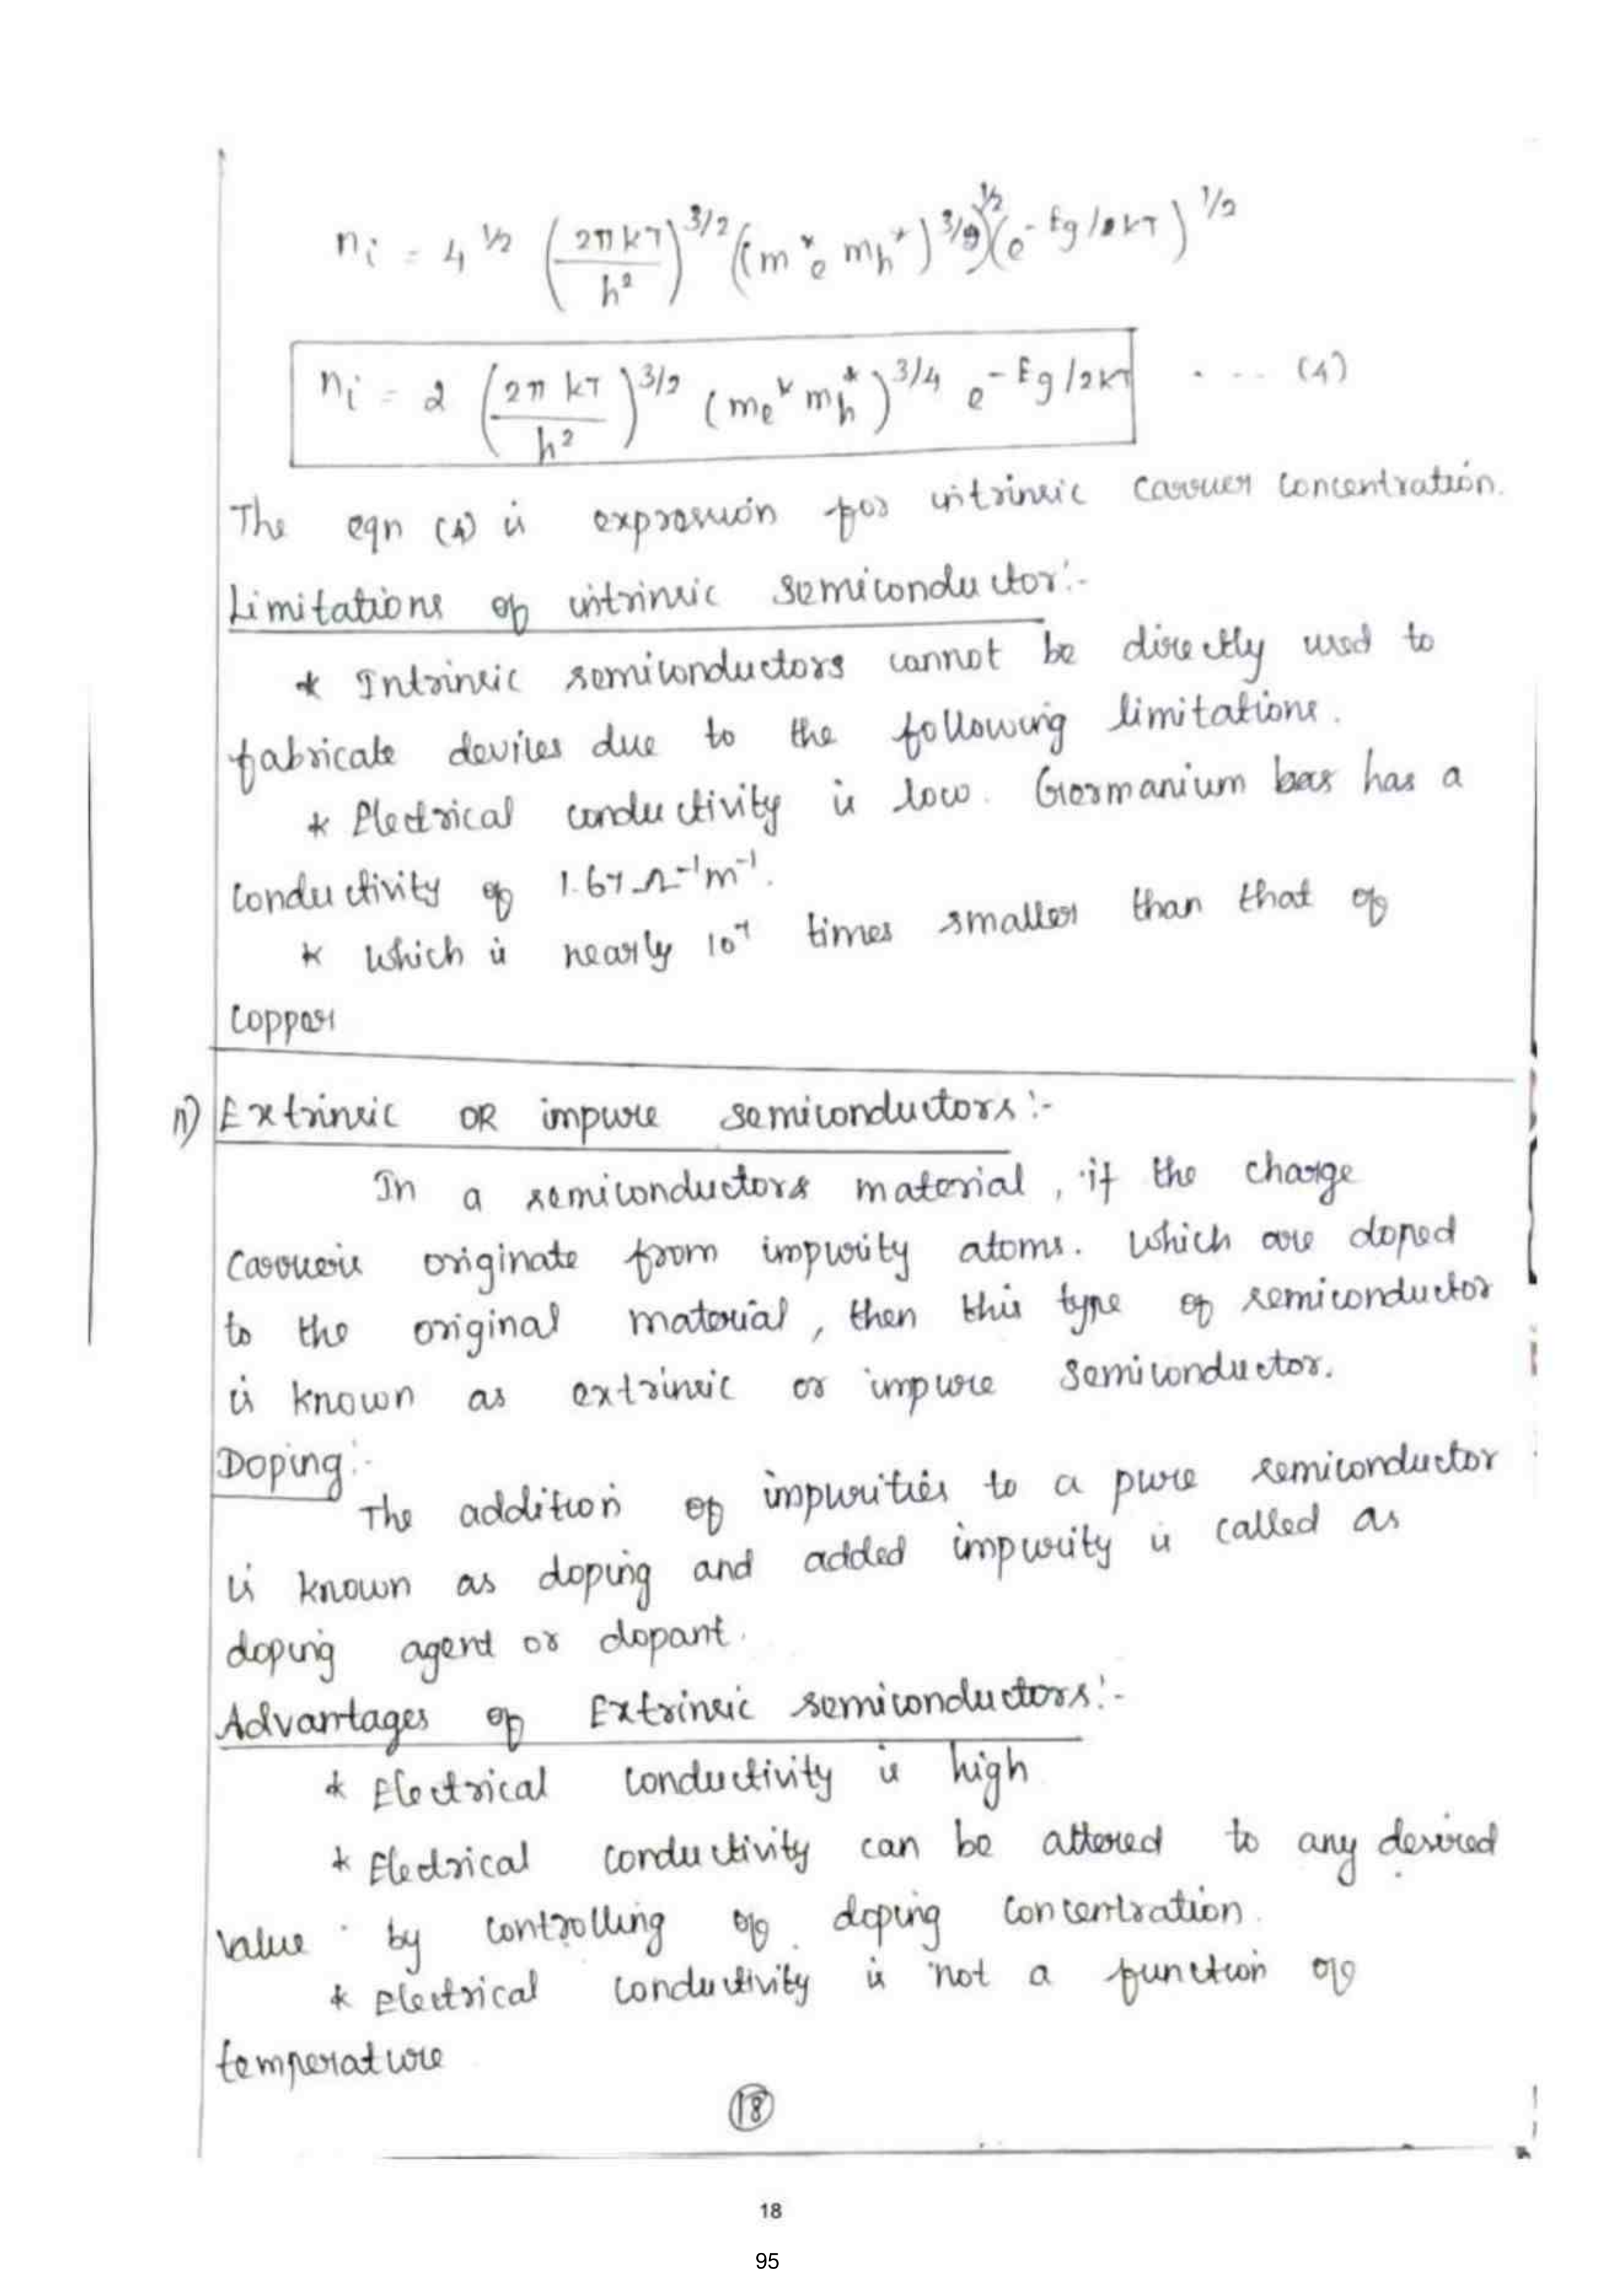 nᵢ = 4^1/2 (2πkT / h²)^3/2 ((m*e mh*)^3/2)^1/2 (e^-Eg/kT)^1/2
nᵢ = 2 (2π kT / h²)^3/2 (me* mh*)^3/4 e^-Eg/2kT . ... (4)
The eqn (4) is expression for intrinsic carrier concentration.
Limitations of intrinsic semiconductor:-
* Intrinsic semiconductors cannot be directly used to
fabricate devices due to the following limitations.
* Electrical conductivity is low. Germanium bar has a
conductivity of 1.67 Ω⁻¹m⁻¹.
* which is nearly 10⁷ times smaller than that of
Copper
ii) Extrinsic OR impure semiconductors:-
In a semiconductors material, if the charge
carriers originate from impurity atoms. Which are doped
to the original material, then this type of semiconductor
is known as extrinsic or impure semiconductor.
Doping:-
The addition of impurities to a pure semiconductor
is known as doping and added impurity is called as
doping agent or dopant.
Advantages of Extrinsic semiconductors:-
* Electrical conductivity is high
* Electrical conductivity can be altered to any desired
value by controlling of doping concentration.
* Electrical conductivity is not a function of
temperature
18
18
95